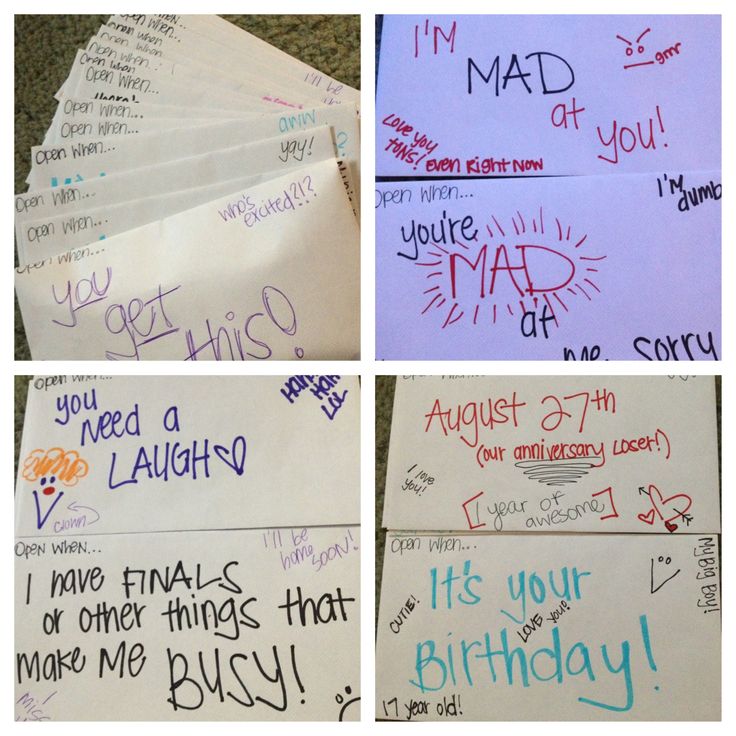 Open When...
Open When
Open When
Open When...
Open When
Open When...
I'll be
Open When...
Open When...
Open When...
yay!
Open When...
Open When...
who's
excited?!?
Open When...
you
get
this!
I'M
MAD
at
you!
grr
Love you
tons! Even Right Now
Open When...
I'M
dumb
you're
MAD
at
me. Sorry
Open When...
you
Need a
LAUGH
Haha
Haha
LOL
clown
Open When...
I'll be
home
soon!
I have FINALS
or other things that
make me BUSY!
I
Miss
August 27th
(our anniversary Loser!)
I love
you!
[1 year of
awesome]
Open When...
My Big Boy!
It's your
CUTIE!
LOVE YOU!
Birthday!
17 year old!